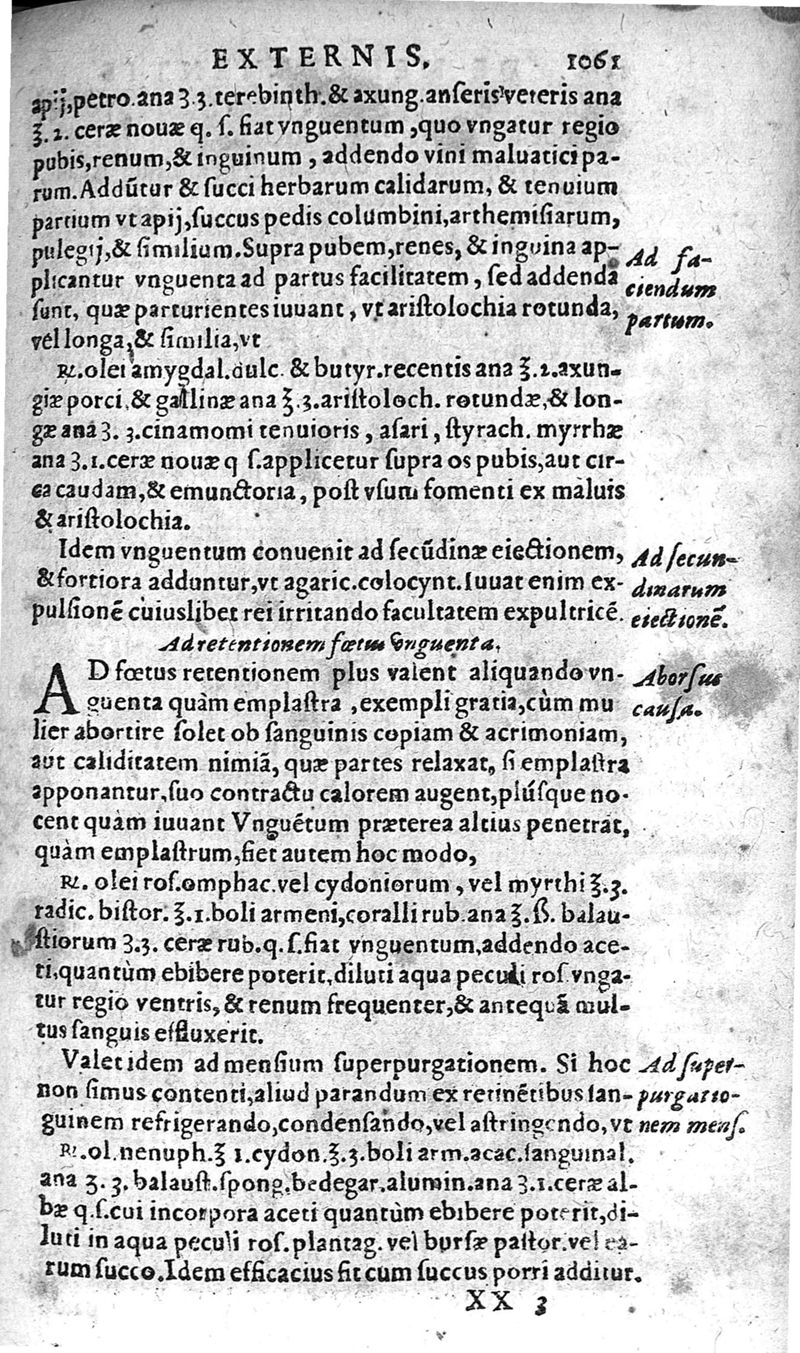 EXTERNIS. 1061
apij, petro. ana ʒ.3. terebinth. & axung. anſeris veteris ana
℥.1. ceræ nouæ q. ſ. fiat vnguentum, quo vngatur regio
pubis, renum, & inguinum, addendo vini maluatici pa-
rum. Addūtur & ſucci herbarum calidarum, & tenuium
partium vt apij, ſuccus pedis columbini, arthemiſiarum,
pulegij, & ſimilium. Supra pubem, renes, & inguina ap-
plicantur vnguenta ad partus facilitatem, ſed addenda
ſunt, quæ parturientes iuuant, vt ariſtolochia rotunda,
vel longa, & ſimilia, vt
Ad fa-
ciendum
partum.
℞. olei amygdal. dulc. & butyr. recentis ana ℥.1. axun-
giæ porci, & gallinæ ana ℥.3. ariſtoloch. rotundæ, & lon-
gæ ana ʒ. 3. cinamomi tenuioris, aſari, ſtyrach. myrrhæ
ana ʒ.1. ceræ nouæ q ſ. applicetur ſupra os pubis, aut cir-
ca caudam, & emunctoria, poſt vſum fomenti ex maluis
& ariſtolochia.
Idem vnguentum conuenit ad ſecūdinæ eiectionem,
& fortiora adduntur, vt agaric. colocynt. Iuuat enim ex-
pulſionē cuiuslibet rei irritando facultatem expultricē.
Ad ſecun-
dinarum
eiectionē.
Ad retentionem fœtus vnguenta.
AD fœtus retentionem plus valent aliquando vn-
guenta quàm emplaſtra, exempli gratia, cùm mu
lier abortire ſolet ob ſanguinis copiam & acrimoniam,
aut caliditatem nimiā, quæ partes relaxat, ſi emplaſtra
apponantur, ſuo contractu calorem augent, pluſque no-
cent quàm iuuant Vnguētum præterea altius penetrat,
quàm emplaſtrum, fiet autem hoc modo,
Aborſus
cauſa.
℞. olei roſ. omphac. vel cydoniorum, vel myrthi ℥.3.
radic. biſtor. ℥.1. boli armeni, coralli rub. ana ℥.ß. balau-
ſtiorum ʒ.3. ceræ rub. q. ſ. fiat vnguentum, addendo ace-
ti, quantùm ebibere poterit, diluti aqua peculi roſ. vnga-
tur regio ventris, & renum frequenter, & antequā mul-
tus ſanguis effluxerit.
Valet idem ad menſium ſuperpurgationem. Si hoc
non ſimus contenti, aliud parandum ex retinētibus ſan-
guinem refrigerando, condenſando, vel aſtringendo, vt
Ad ſuper-
purgatio-
nem menſ.
℞. ol. nenuph. ℥ 1. cydon. ℥.3. boli arm. acac. ſanguinal.
ana ʒ. 3. balauſt. ſpong. bedegar. alumin. ana ʒ.1. ceræ al-
bæ q. ſ. cui incorpora aceti quantùm ebibere poterit, di-
luti in aqua peculi roſ. plantag. vel burſæ paſtor. vel ea-
rum ſucco. Idem efficacius fit cum ſuccus porri additur.
XX 3